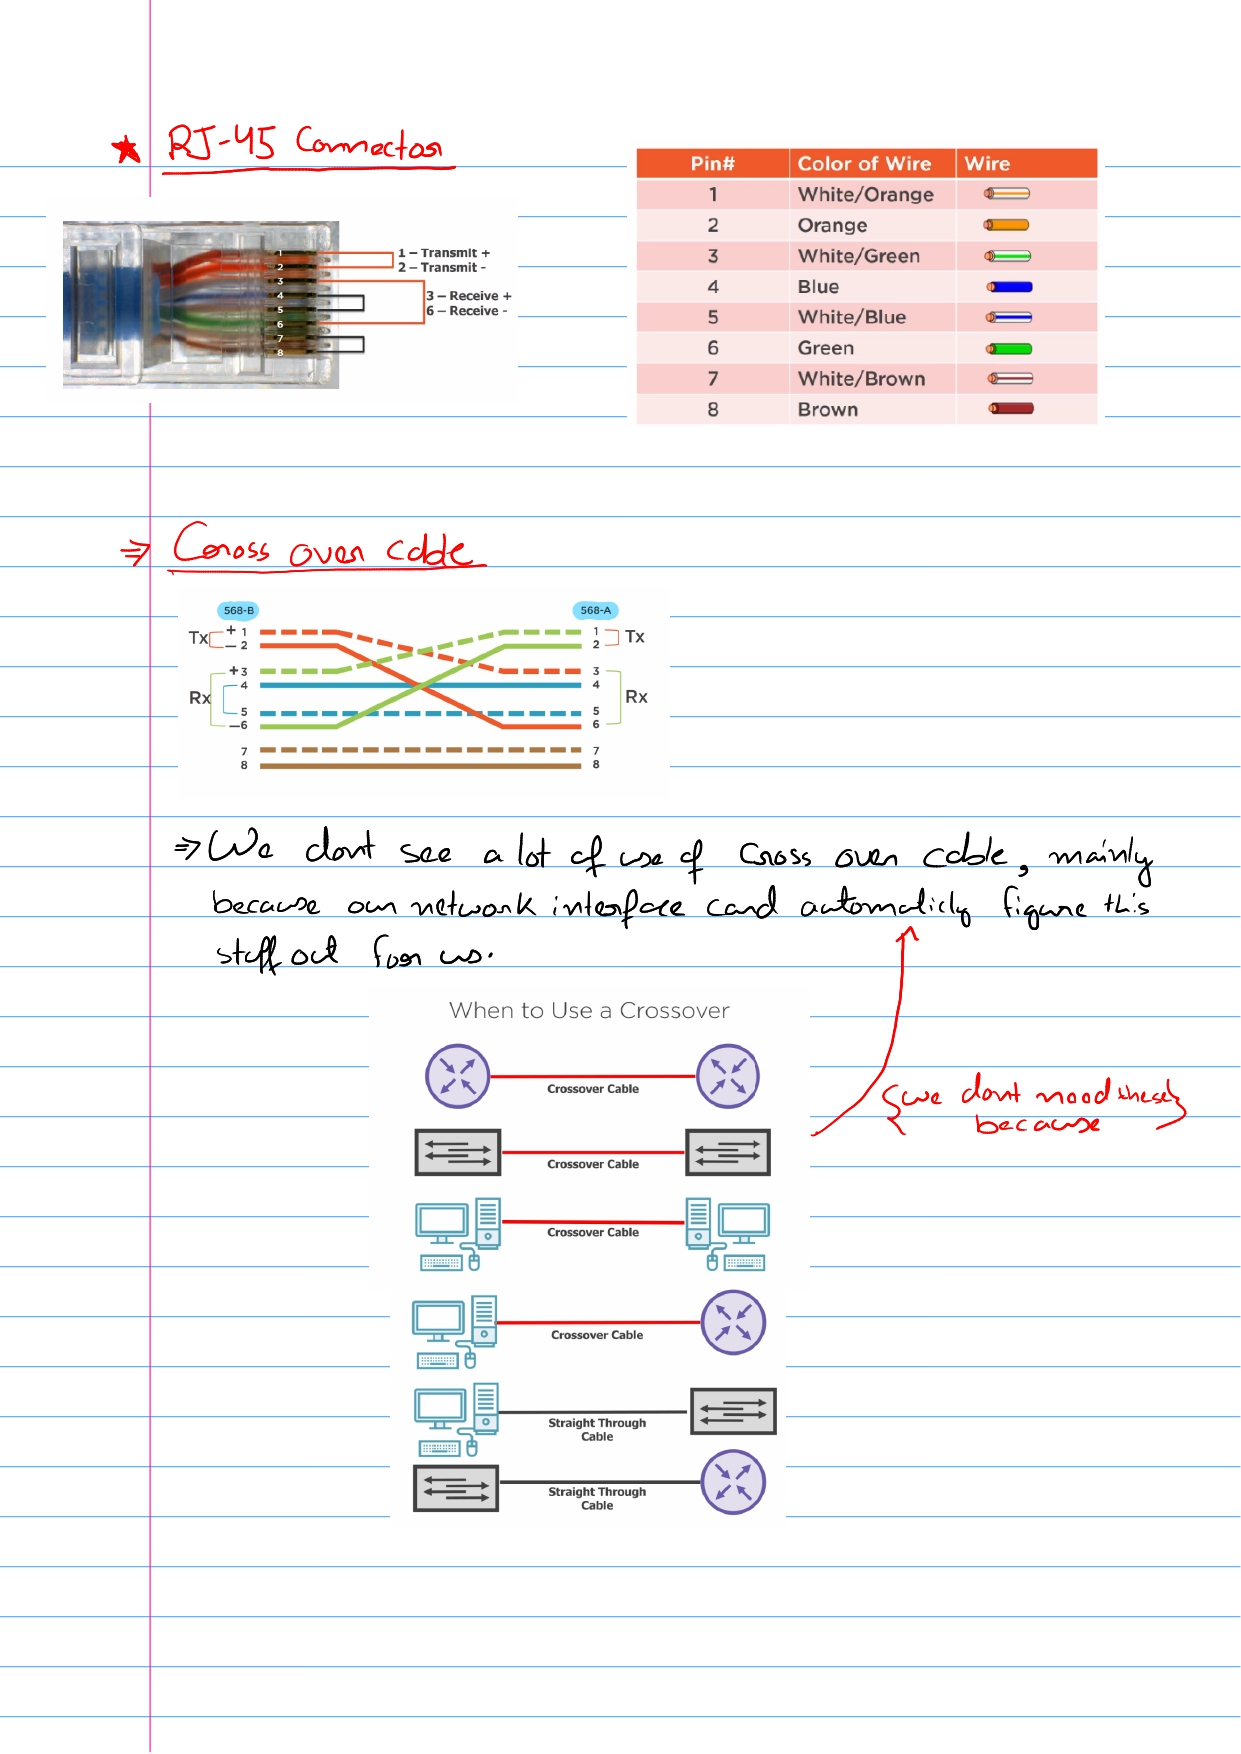 RJ-45 Connector
1 – Transmit +
2 – Transmit -
3 – Receive +
6 – Receive -
1
2
3
4
5
6
7
8
Pin# Color of Wire Wire
1 White/Orange
2 Orange
3 White/Green
4 Blue
5 White/Blue
6 Green
7 White/Brown
8 Brown
⇒ Cross over cable
568-B 568-A
Tx + 1 1 Tx
– 2 2
+ 3 3
4 4
Rx Rx
5 5
– 6 6
7 7
8 8
⇒ We dont see a lot of use of cross over cable, mainly
because our network interface card automaticly figure this
stuff out for us.
When to Use a Crossover
Crossover Cable
{we dont need these}
because
Crossover Cable
Crossover Cable
Crossover Cable
Straight Through
Cable
Straight Through
Cable